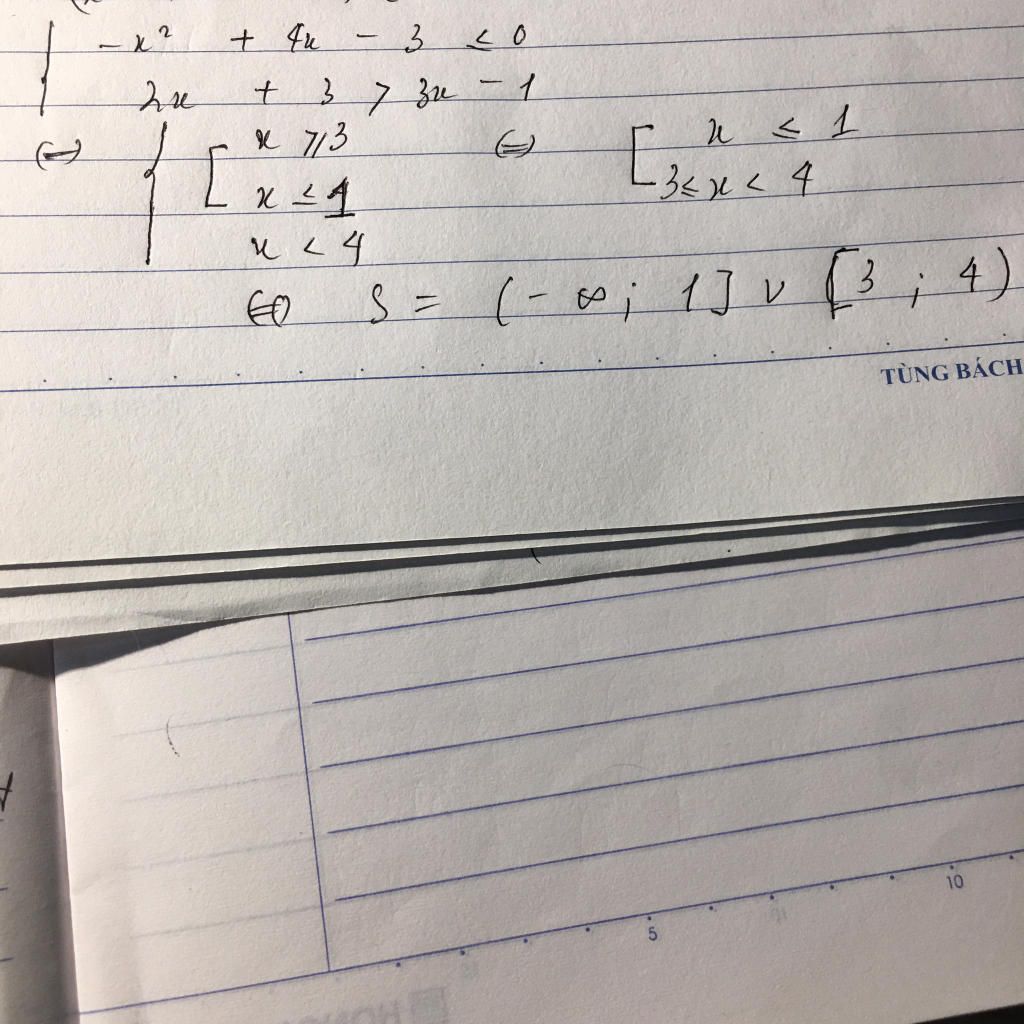 -x² + 4x - 3 ≤ 0
2x + 3 > 3x - 1
⇔ x ≥ 3 ⇔ x ≤ 1
x ≤ 1 3 ≤ x < 4
x < 4
⇔ S = (-∞; 1] ∪ [3; 4)
TÙNG BÁCH
5
10